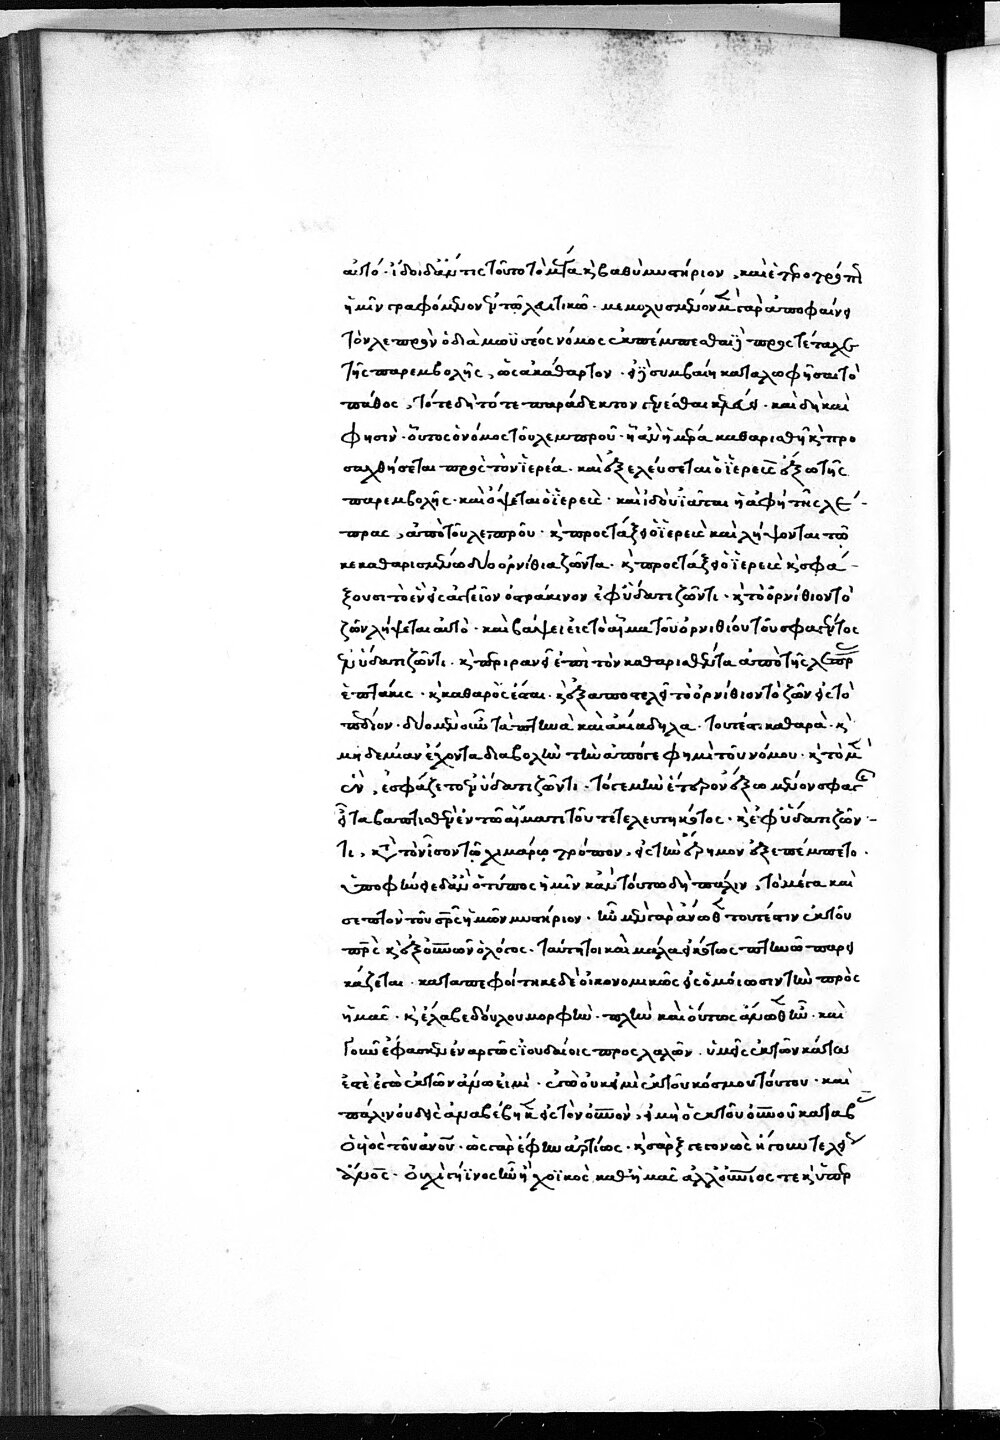 αὐτό· ἴδοι δ' ἄν τις τοῦτο τὸ μέγα κ(αὶ) βαθὺ μυστήριον, καὶ ἑτέρῳ τρόπῳ
ἡμῖν γραφόμενον ἐν τῷ λευιτικῷ· μεμολυσμένον μὲν γὰρ ἀποφαίνει
τὸν λεπρὸν ὁ διὰ μωϋσέος νόμος ἐκπέμπεσθαί γε προστέταχε
τῆς παρεμβολῆς, ὡς ἀκάθαρτον· εἰ δὲ συμβαίη καταλωφῆσαι τὸ
πάθος, τότε δὴ τότε παράδεκτον γενέσθαι κελεύει· καὶ δὴ καὶ
φησὶν· οὗτος ὁ νόμος τοῦ λεπροῦ· ᾗ ἂν ἡμέρᾳ καθαρισθῇ κ(αὶ) προ
σαχθήσεται πρὸς τὸν ἱερέα· καὶ ἐξελεύσεται ὁ ἱερεὺς ἔξω τῆς
παρεμβολῆς· καὶ ὄψεται ὁ ἱερεὺς· καὶ ἰδοὺ ἰᾶται ἡ ἁφὴ τῆς λέ-
πρας, ἀπὸ τοῦ λεπροῦ· κ(αὶ) προστάξει ὁ ἱερεὺς καὶ λήψονται τῷ
κεκαθαρισμένῳ δύο ὀρνίθια ζῶντα· κ(αὶ) προστάξει ὁ ἱερεὺς κ(αὶ) σφά-
ξουσι τὸ ἓν εἰς ἀγγεῖον ὀστράκινον ἐφ' ὕδατι ζῶντι· κ(αὶ) τὸ ὀρνίθιον τὸ
ζῶν λήψεται αὐτὸ· καὶ βάψει εἰς τὸ αἷμα τοῦ ὀρνιθίου τοῦ σφαγέντος
ἐν ὕδατι ζῶντι· κ(αὶ) περιρανεῖ ἐπὶ τὸν καθαρισθέντα ἀπὸ τῆς λέπρ
ἑπτάκις· κ(αὶ) καθαρὸς ἔσται· κ(αὶ) ἐξαποστελεῖ τὸ ὀρνίθιον τὸ ζῶν εἰς τὸ
πεδίον· δύο μὲν οὖν τὰ πτηνὰ καὶ ἀκίβδηλα· τουτέστι καθαρὰ· κ(αὶ)
μηδεμίαν ἔχοντα διαβολὴν τὴν ἀπό γε φημὶ τοῦ νόμου· κ(αὶ) τὸ μὲν
ἓν, ἐσφάζετο ἐν ὕδατι ζῶντι· τό γε μὴν ἕτερον ἔξω μένον σφαγῆς
εἶτα βαπτισθὲν ἐν τῷ αἵματι τοῦ τετελευτηκότος· κ(αὶ) ἐφ' ὕδατι ζῶν-
τι, κ(ατὰ) τὸν ἴσον τῷ χιμάρῳ τρόπον, εἰς τὴν ἔρημον ἐξεπέμπετο·
ὑποφήνειε δ' ἂν ὁ τύπος ἡμῖν κἀν τούτῳ δὴ πάλιν, τὸ μέγα καὶ
σεπτὸν τοῦ σ(ωτῆ)ρ(ο)ς ἡμῶν μυστήριον· ἦν μὲν γὰρ ἄνωθεν τουτέστιν ἐκ τοῦ
π(ατ)ρ(ὸ)ς κ(αὶ) ἐξ οὐ(ρα)νῶν ὁ λόγος· ταύτῃ τοι καὶ μάλα εἰκότως πτηνῷ παρει
κάζεται· καταπεφοίτηκε δὲ οἰκονομικῶς εἰς ὁμοίωσιν τὴν πρὸς
ἡμᾶς· κ(αὶ) ἔλαβε δούλου μορφὴν· πλὴν καὶ οὕτως ἄνωθεν ἦν· καὶ
γοῦν ἔφασκεν ἐναργῶς ἰουδαίοις προσλαλῶν· ὑμεῖς ἐκ τῶν κάτω
ἐστὲ ἐγὼ ἐκ τῶν ἄνω εἰμὶ· ἐγὼ οὐκ εἰμὶ ἐκ τοῦ κόσμου τούτου· καὶ
πάλιν οὐδεὶς ἀναβέβηκεν εἰς τὸν οὐ(ρα)νὸν, εἰ μὴ ὁ ἐκ τοῦ οὐ(ρα)νοῦ καταβὰς
ὁ υἱὸς τοῦ ἀν(θρώπ)ου· ὡς γὰρ ἔφην ἀρτίως· κ(αὶ) σὰρξ γεγονὼς ἤγουν τέλειος
ἄν(θρωπ)ος· οὐχὶ γήϊνος ἦν ἢ χοϊκὸς καθ' ἡμᾶς ἀλλ' οὐ(ρά)νιος τε κ(αὶ) ὑπὲρ